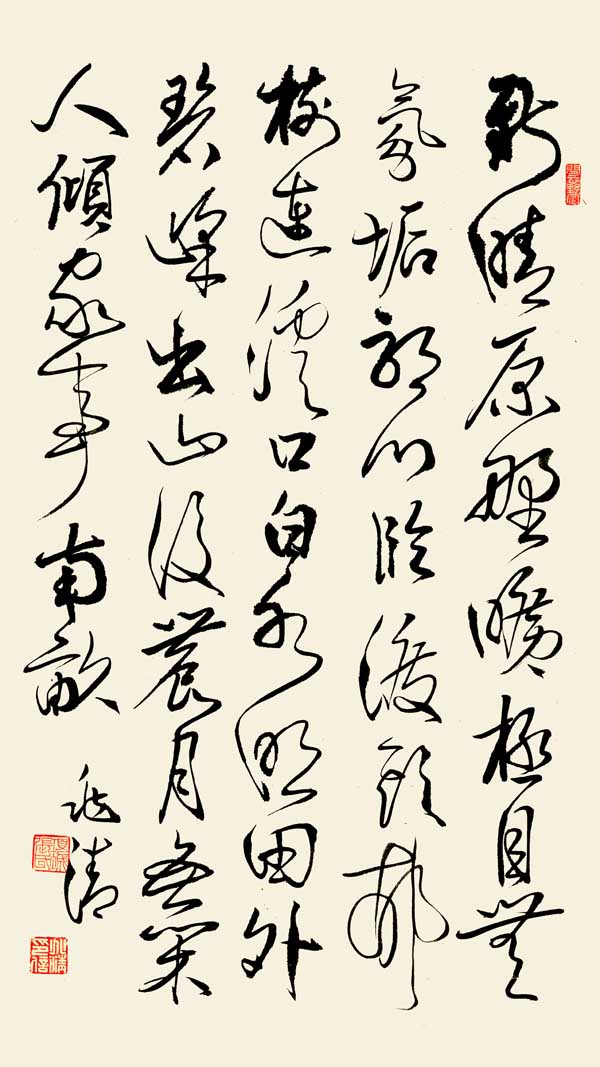 新晴原野曠極目無
氛垢郭門臨渡頭村
樹連溪口白水明田外
碧峯出山後農月無閑
人傾家事南畝
兆清